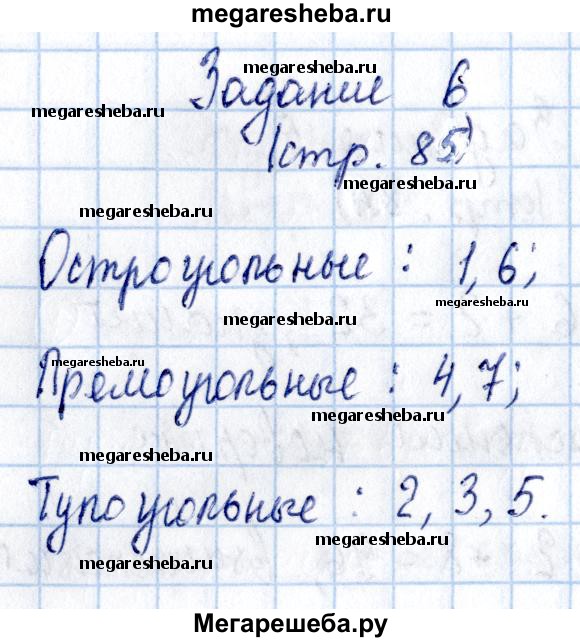 megaresheba.ru
megaresheba.ru
Задание 6
megaresheba.ru
(стр. 85)
megaresheba.ru
megaresheba.ru
Остроугольные : 1, 6;
megaresheba.ru
megaresheba.ru
megaresheba.ru
Прямоугольные : 4, 7;
megaresheba.ru
megaresheba.ru
Тупоугольные : 2, 3, 5.
megaresheba.ru
megaresheba.ru
Мегарешеба.ру